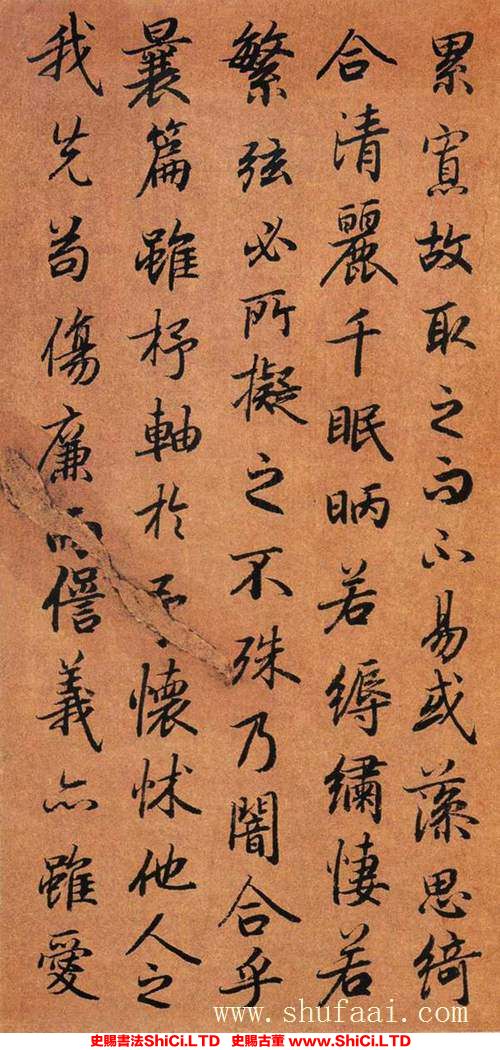 累寡故取之而不易或藻思綺
合清麗千眠昞若縟繡悽若
繁弦必所擬之不殊乃闇合乎
曩篇雖杼軸於予懷怵他人之
我先苟傷廉而僁義亦雖愛
www.shufaai.com
史賜書法ShiCi.LTD 史賜古董 www.ShiCi.LTD